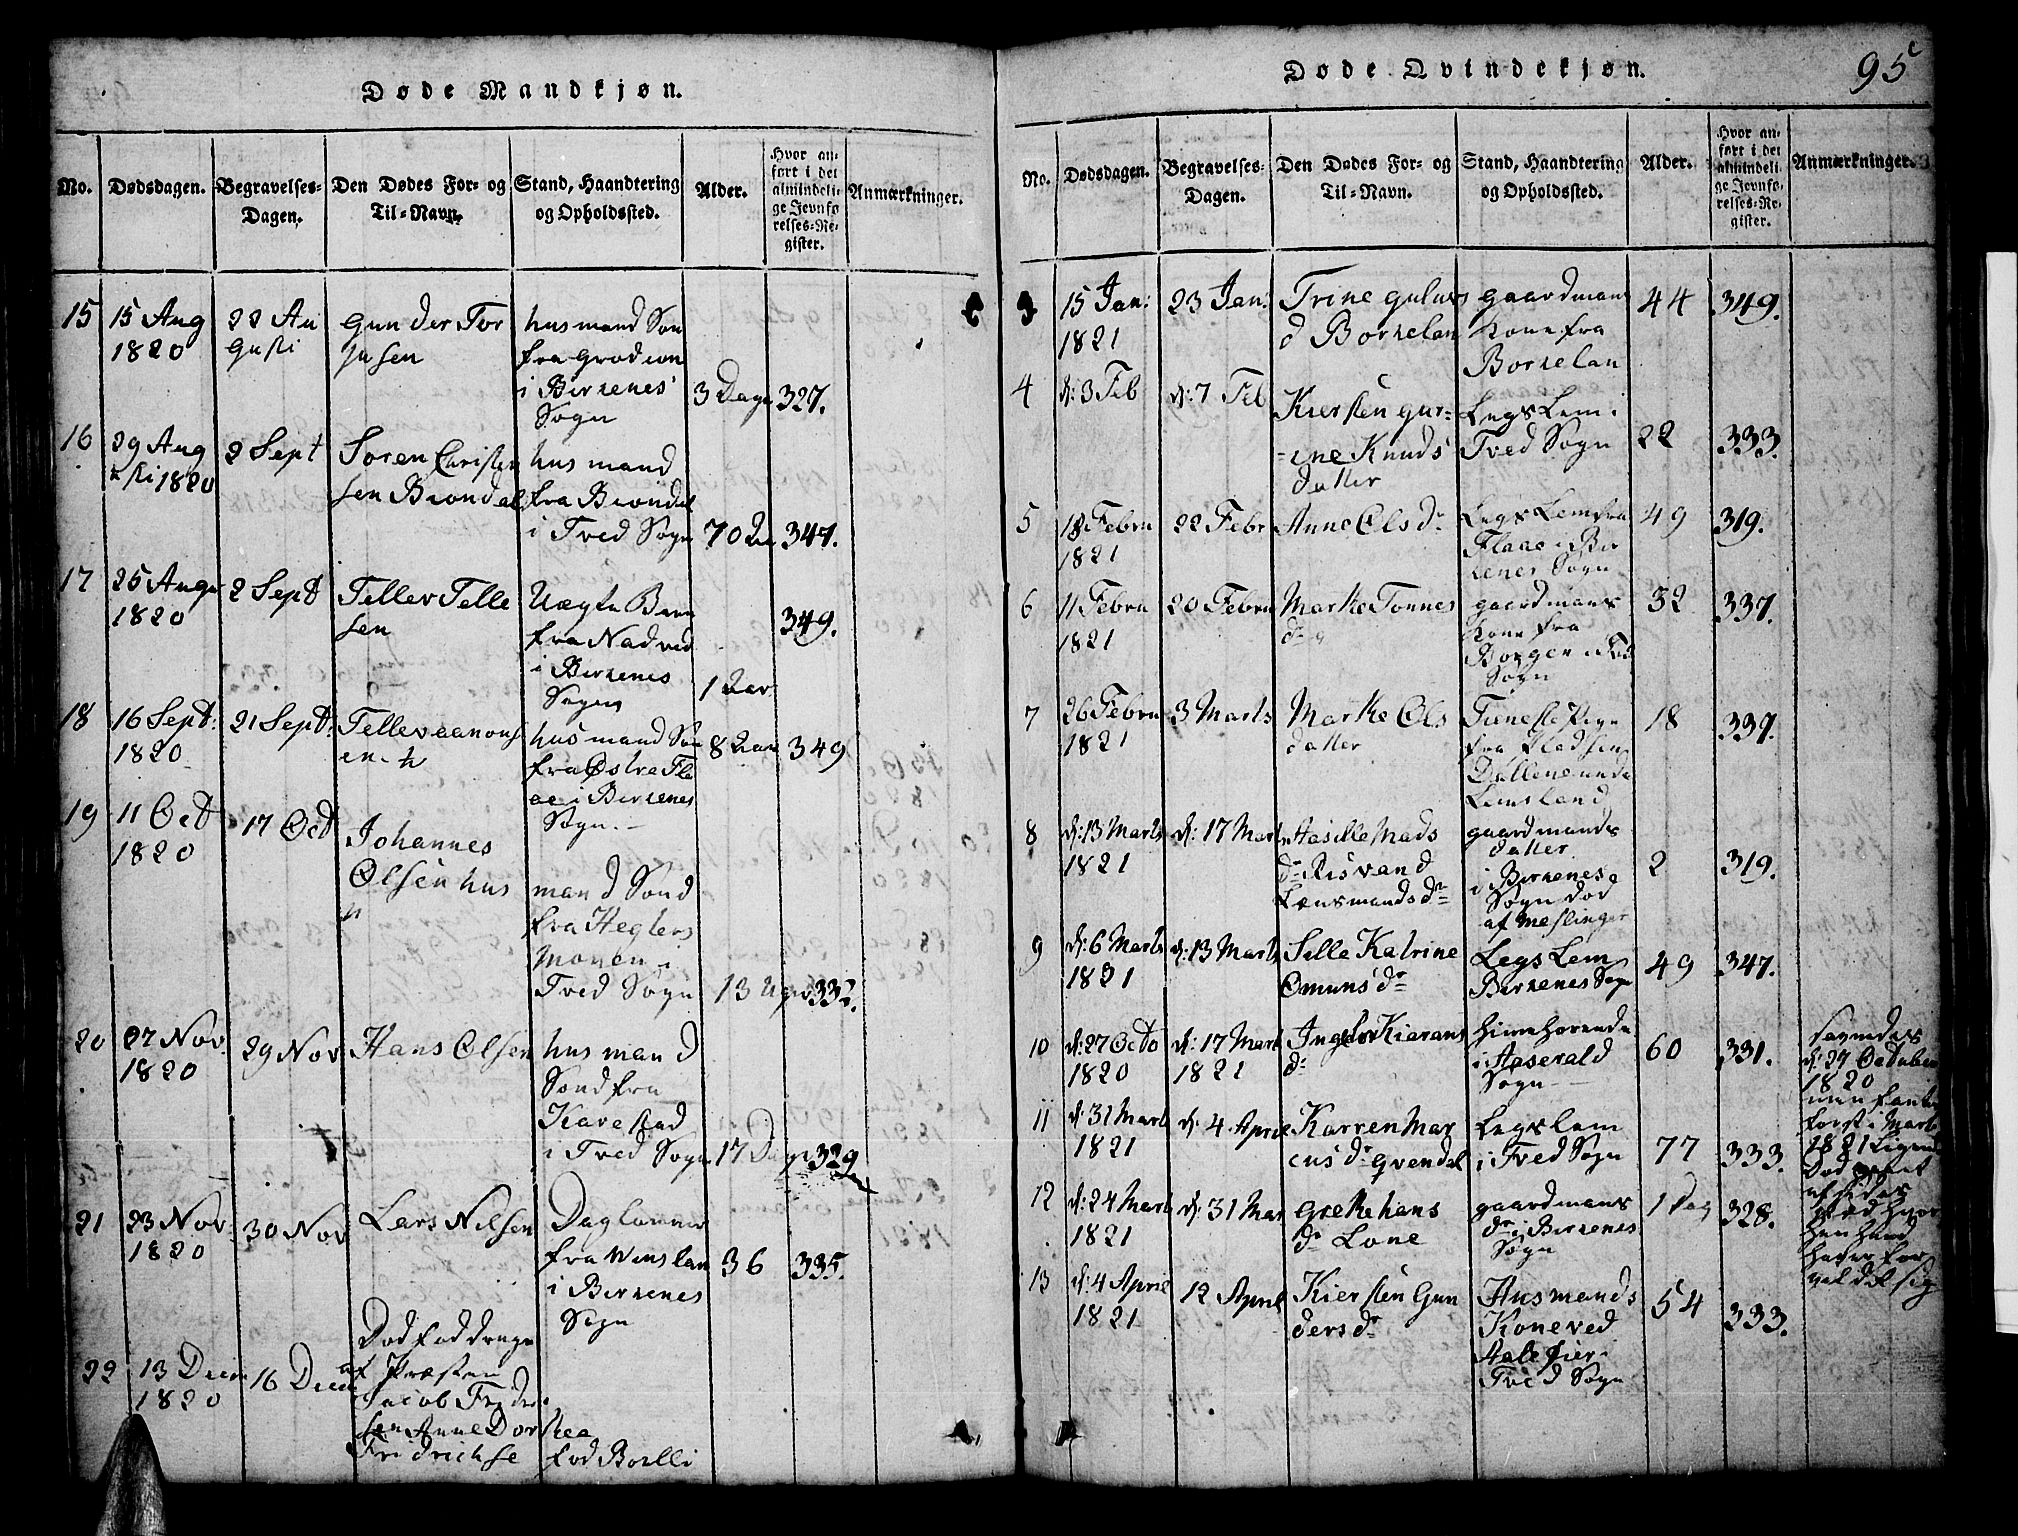 Døde Mandkjøn.
No.
Dødsdagen.
Begravelses-
Dagen.
Den Dødes For- og
Til-Navn.
Stand, Haandtering
og Opholdssted.
Alder.
Hvor an-
ført i det
almindeli-
ge Jevnfø
relses-Re-
gister.
Anmærkninger.
15
15 Aug
1820
22 Au
gusti
Gunder Tor
jusen
husmand Søn
fra
i Birkenes
Sogn
3 Dage
327.
16
29 Aug
usti 1820
2 Sept
Søren Christen
sen Biondal
husmand
fra Biondal
i Tved Sogn
70
347.
17
25 Aug
1820
2 Sept
Tellev Telle
sen
Uægte Barn
fra Nadved
i Birkenes
Sogn
1 Aar
349.
18
16 Sept:
1820
21 Sept:
husmand Søn
fra Østre Fla
ae i Birkenes
Sogn.
8 Aar
349
19
11 Oct
1820
17 Oct
Johannes
Olsen hus
mand Sønd
fra
i
Tved Sogn
13 Uger
20
27 Nov.
1820
29 Nov
Hans Olsen
husmand
Sønd fra
Kavestad
i Tved Sogn
17 Dage
329
21
23 Nov.
1820
30 Nov
Lars Nilsen
Daglønner
fra Winslan
i Birkenes
Sogn
36
335.
22
13 Decem
1820
16 Decem
Død fød drenge
af Præsten
Jacob Frider
sen Anne Dorthea
Fridrichse fød Boelli
Døde Qvindekjøn.
95
No.
Dødsdagen.
Begravelses-
Dagen.
Den Dødes For- og
Til-Navn.
Stand, Haandtering
og Opholdssted.
Alder.
Hvor an-
ført i det
almindeli-
ge Jevnfø-
relses-Re-
gister.
Anmærkninger.
3
15 Jan:
1821
23 Jan:
Trine
d Borkelan
gaardmans
kone fra
Borkelan
44
349.
4
d: 3 Feb
d: 7 Feb
Kiersten Gur-
-ine Knuds
datter
Legs Lem i
Tved Sogn
22
333.
5
18 Febru
1821
22 Febr
Anne Ols dr
Legs Lem fra
Flaae i Bir
kenes Sogn
49
319.
6
11 Febru
1821
20 Febru
Marthe Tønnes
dr
gaardmans
kone fra
Sogn
32
337.
7
26 Febru
1821
3 Marts
Marthe Ols
datter
Tieneste Pige
fra Pladsen
Dallene unde
Lemsland
18
339.
8
d: 13 Marts
1821
d: 17 Mart
Aasille Mads
dr Risvand
Lænsmands dr
gaardmands
datter
i Birkenes
Sogn død
af Meslinger
2
319.
9
d: 6 Marts
1821
d: 13 Marts
Sille Katrine
Omuns dr
Legs Lem
Birkenes Sogn
49
347.
10
d: 27 Octo
1820
d: 17 Mart
1821
Ingebor Kiærans
dr
hiemhørende
i Aaserald
Sogn
60
331.
savnedes
d: 27 October
1820
men fantes
først i Mart
1821
11
d: 31 Mart
1821
d: 4 April
Karren Mar
cus dr Grendal
Legslem
i Tved Sogn
77
333.
12
d: 24 Mart
1821
d: 31 Mar
Grethe Hans
dr Lone
gaardmans
dr i Birkenes
Sogn
1 Dag
328.
13
d: 4 April
1821
12 April
Kiersten Gun
ders dr
Husmands
Kone ved
Tved Sogn
54
333.